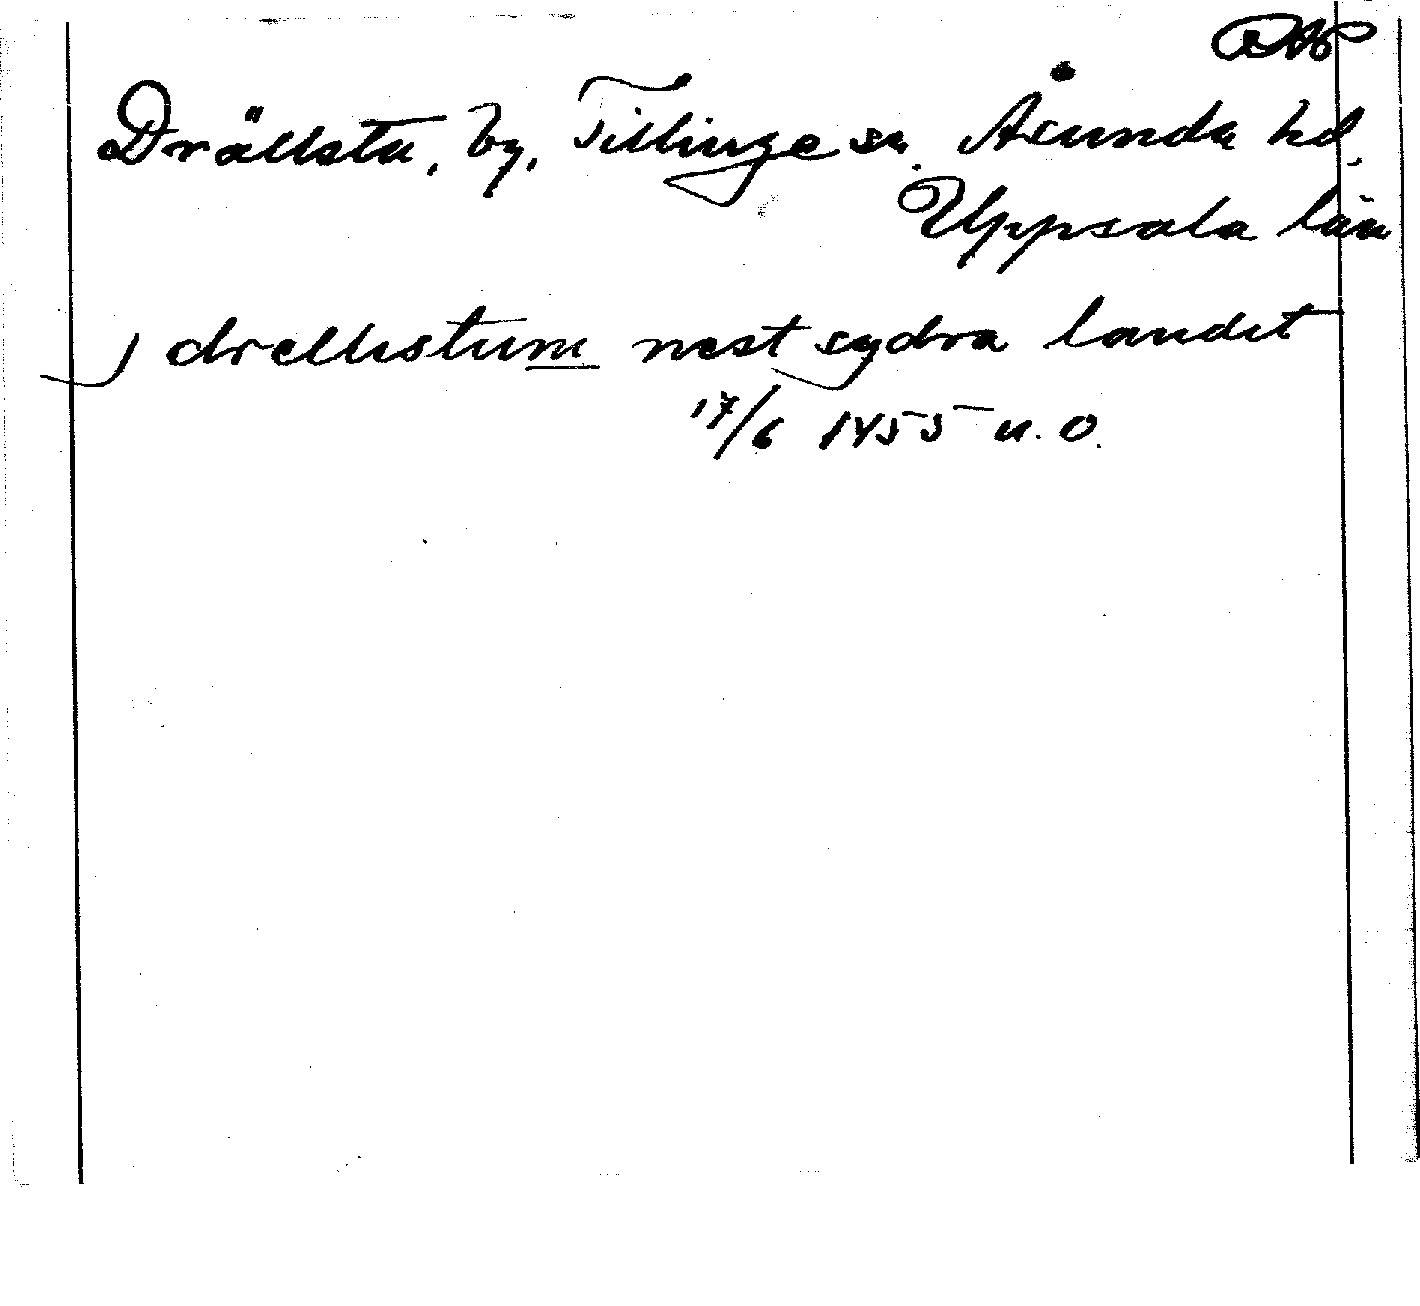 Drällsta, by, Tillinge sn. Åsunda hd,
Uppsala län
drellistum nest sydra landit
17/6 1455 u. O.